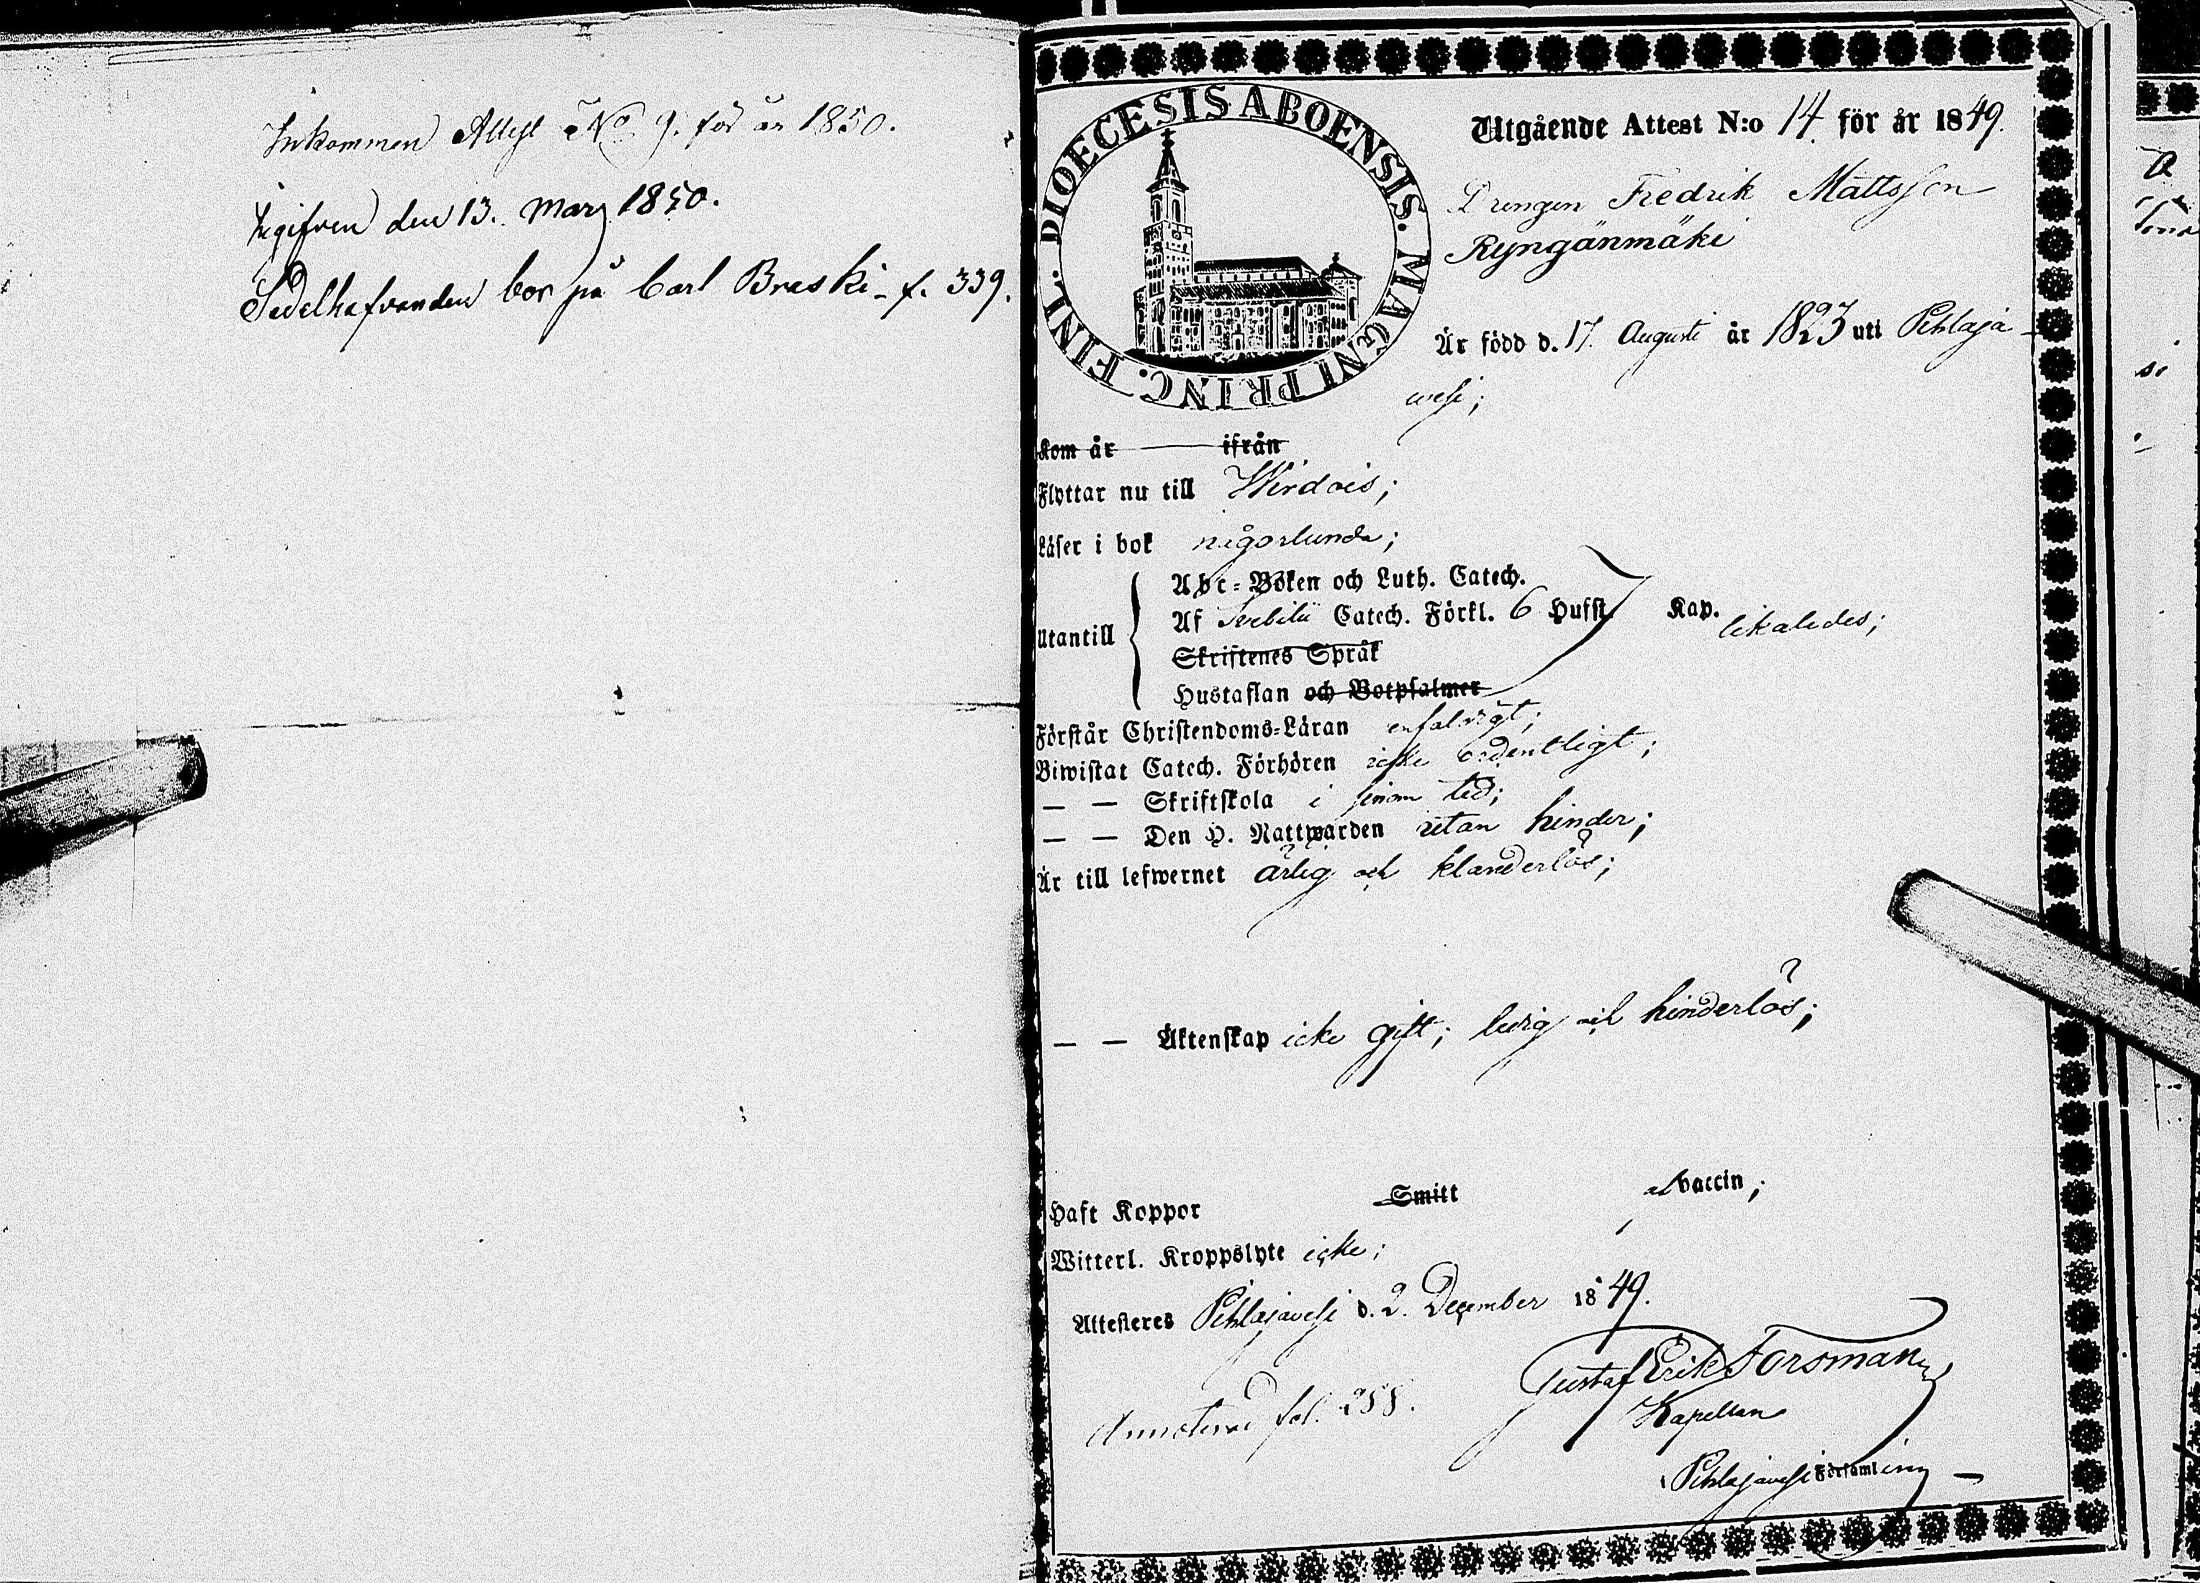 Inkommen Attest No 9. för år 1850.
Ingifven den 13. Mars 1850.
Sedelhafvanden bor på Carl Breski - f. 339.
DIOECESIS ABOENSIS. MAGNI PRINC. FINL.
Utgående Attest N:o 14 för år 1849.
Drengen Fredrik Mattsson
Ryngänmäki
Är född d. 17. Augusti år 1823 uti Pihlaja-
wesi;
Kom år ifrån
Flyttar nu till Wirdois;
Läser i bok någorlunda;
Abc-Boken och Luth. Catech.
Utantill Af Svebilii Catech. Förkl. 6 Hufst. Kap. likaledes;
Skriftenes Språk
Hustaflan och Botpsalmer
Förstår Christendoms-Läran enfaldigt;
Biwistat Catech. Förhören icke ordentligt;
— — Skriftskola i sinom tid;
— — Den H. Nattwarden utan hinder;
Är till lefwernet ärlig och klanderlös;
— — Äktenskap icke gift; ledig och hinderlös;
Haft Koppor Smitt af vaccin;
Witterl. Kroppslyte icke;
Attesteres Pihlajavesi d. 2. December 1849.
Gustaf Erik Forsman
Annoterad fol. 258.
Kapellan
Pihlajavesi Församling